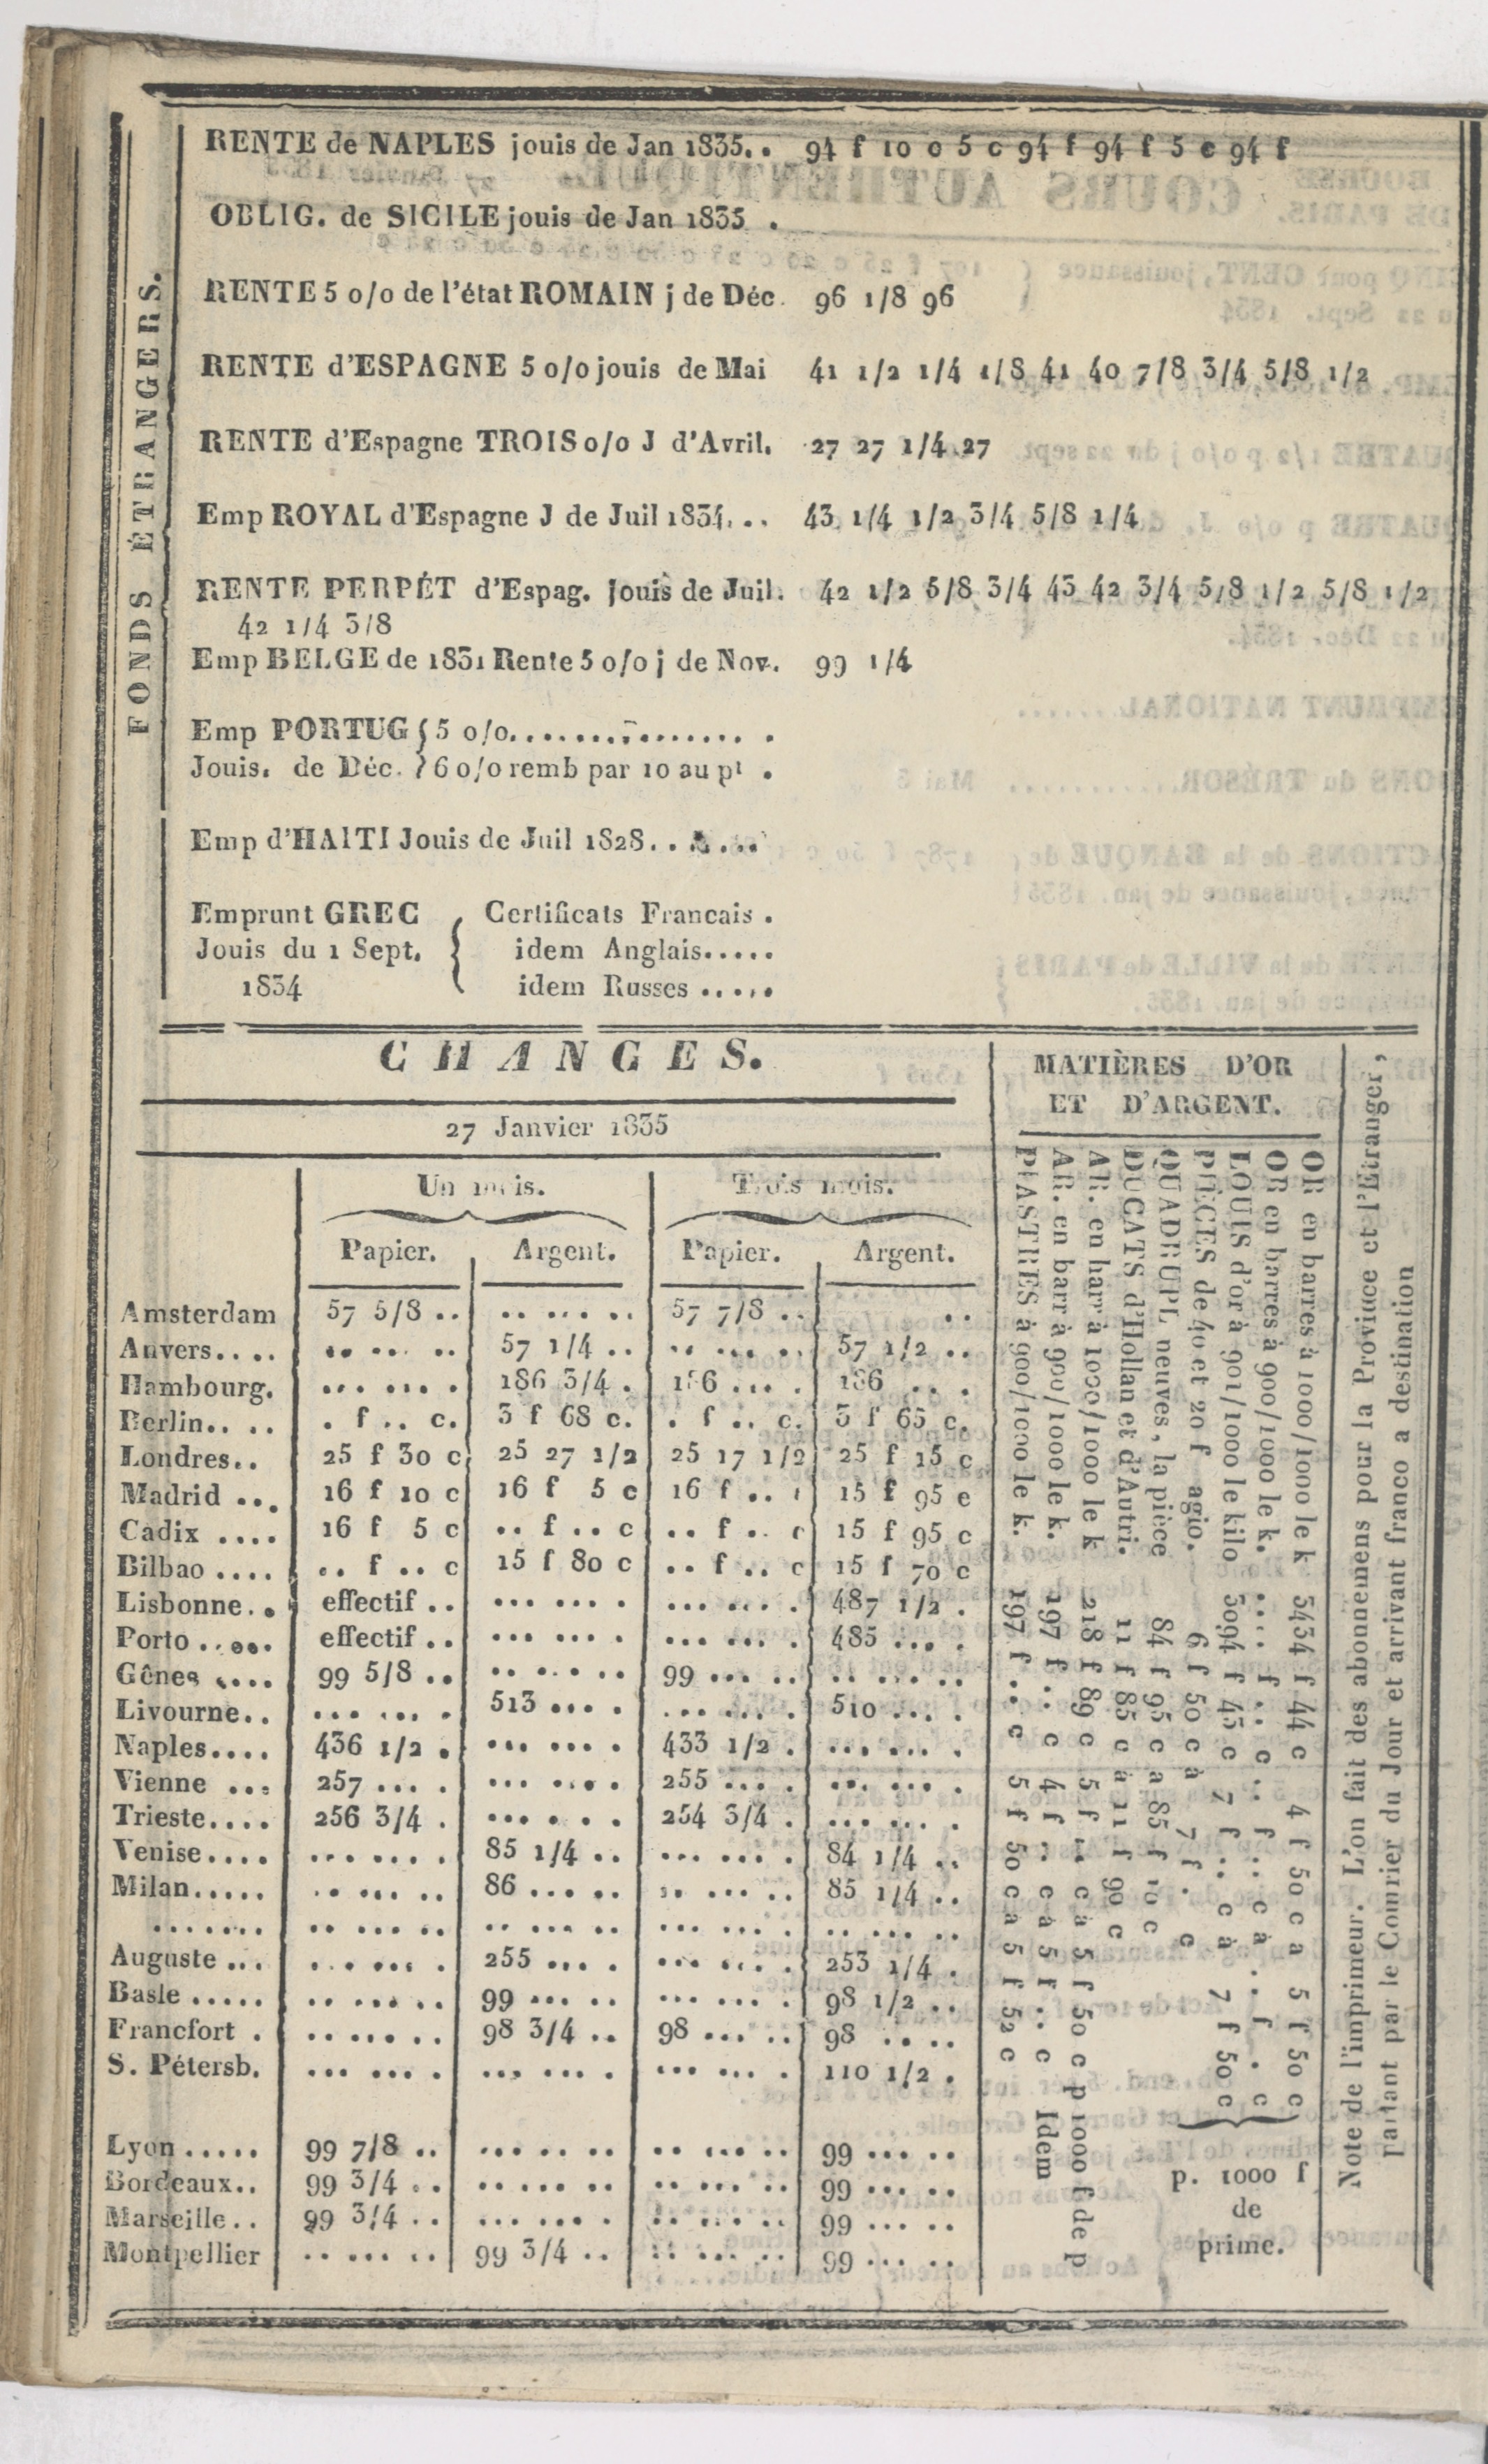 FONDS ÉTRANGERS.
RENTE de NAPLES jouis de Jan 1835. . 94 f 10 c 5 c 94 f 94 f 5 c 94 f
OBLIG. de SICILE jouis de Jan 1835 .
RENTE 5 o/o de l'état ROMAIN j de Déc. 96 1/8 96
RENTE d'ESPAGNE 5 o/o jouis de Mai 41 1/2 1/4 1/8 41 40 7/8 3/4 5/8 1/2
RENTE d'Espagne TROIS o/o J d'Avril. 27 27 1/4 27
Emp ROYAL d'Espagne J de Juil 1834. . . 43 1/4 1/2 3/4 5/8 1/4
RENTE PERPÉT d'Espag. Jouis de Juil. 42 1/2 5/8 3/4 43 42 3/4 5/8 1/2 5/8 1/2
42 1/4 3/8
Emp BELGE de 1831 Rente 5 o/o j de Nov. 99 1/4
Emp PORTUG { 5 o/o. . . . . . . . . . . . . . . .
Jouis. de Déc. } 6 o/o remb par 10 au pt .
Emp d'HAITI Jouis de Juil 1828. . . . . . .
Emprunt GREC { Certificats Francais .
Jouis du 1 Sept. idem Anglais. . . . .
1834 idem Russes . . . . .
CHANGES.
27 Janvier 1835
Un mois. Trois mois.
Papier. Argent. Papier. Argent.
Amsterdam 57 5/8 . . .. ... .. 57 7/8 . . . .
Anvers. . . . .. ... .. 57 1/4 . . .. ... .. 57 1/2 . .
Hambourg. ... ... . 186 3/4 . 186 ... . 186 .. .
Berlin. . . . . f .. c. 3 f 68 c. . f .. c. 3 f 65 c.
Londres. . 25 f 30 c 25 27 1/2 25 17 1/2 25 f 15 c
Madrid ... 16 f 10 c 16 f 5 c 16 f .. 15 f 95 e
Cadix .... 16 f 5 c .. f .. c .. f .. c 15 f 95 c
Bilbao .... .. f .. c 15 f 80 c .. f .. c 15 f 70 c
Lisbonne. . effectif .. ... ... . ... ... . 487 1/2 .
Porto ..... effectif .. ... ... . ... ... . 485 ... .
Gênes .... 99 5/8 .. .. ... .. 99 ... .. .. ... ..
Livourne. . ... ... . 513 ... . ... ... . 510 ... .
Naples.... 436 1/2 . ... ... . 433 1/2 . ... ... .
Vienne ... 257 ... . ... ... . 255 ... . ... ... .
Trieste.... 256 3/4 . ... ... . 254 3/4 . ... ... .
Venise.... ... ... . 85 1/4 .. ... ... . 84 1/4 ..
Milan..... .. ... .. 86 ... .. .. ... .. 85 1/4 ..
....... .. ... .. .. ... .. ... ... .. .. ... ..
Auguste ... ... ... . 255 ... . ... ... . 253 1/4 .
Basle ..... .. ... .. 99 ... .. ... ... . 98 1/2 ..
Francfort . .. ... .. 98 3/4 .. 98 ... .. 98 .. ..
S. Pétersb. ... ... . ... ... . ... ... . 110 1/2 .
Lyon ..... 99 7/8 .. ... .. .. .. ... .. 99 ... ..
Bordeaux.. 99 3/4 .. .. ... .. .. ... .. 99 ... ..
Marseille.. 99 3/4 .. ... ... . .. ... .. 99 ... ..
Montpellier .. ... .. 99 3/4 .. .. ... .. 99 ... ..
MATIÈRES D'OR
ET D'ARGENT.
OR en barres à 1000/1000 le k 3434 f 44 c 4 f 50 c a 5 f 50 c
OR en barres à 900/1000 le k. .... f .. c .. f .. c à . . f . c
LOUIS d'or à 901/1000 le kilo 3094 f 43 c 7 f .. c à 7 f 50 c
p. 1000 f
de
prime.
PIÈCES de 40 et 20 f agio. 6 f 50 c à 7 f . c
QUADRUPL neuves, la pièce 84 f 95 c a 85 f 10 c
DUCATS d'Hollan et d'Autri. 11 f 85 c à 11 f 90 c
AR. en barr à 1000/1000 le k 218 f 89 c 5 f .. c à 5 f 50 c p 1000 f de p
AR. en barr à 900/1000 le k. 197 f .. c 4 f .. c à 5 f .. c Idem
PIASTRES à 900/1000 le k. 197 f .. c 5 f 50 c a 5 f 52 c
Note de l'imprimeur. L'on fait des abonnemens pour la Province et l'Etranger,
Partant par le Courrier du Jour et arrivant franco a destination